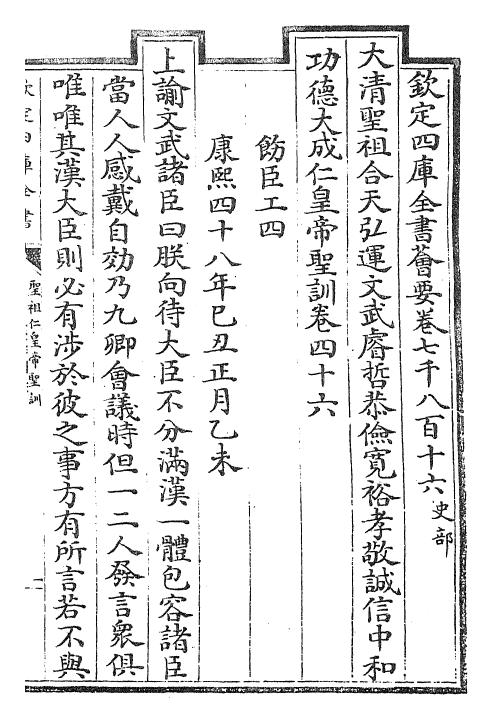 欽定四庫全書薈要卷七千八百十六 史部
大清聖祖合天弘運文武睿哲恭儉寛裕孝敬誠信中和
功德大成仁皇帝聖訓卷四十六
飭臣工四
康熙四十八年己丑正月乙未
上諭文武諸臣曰朕向待大臣不分滿漢一體包容諸臣
當人人感戴自効乃九卿會議時但一二人發言衆俱
唯唯其漢大臣則必有涉於彼之事方有所言若不與
欽定四庫全書
聖祖仁皇帝聖訓
一